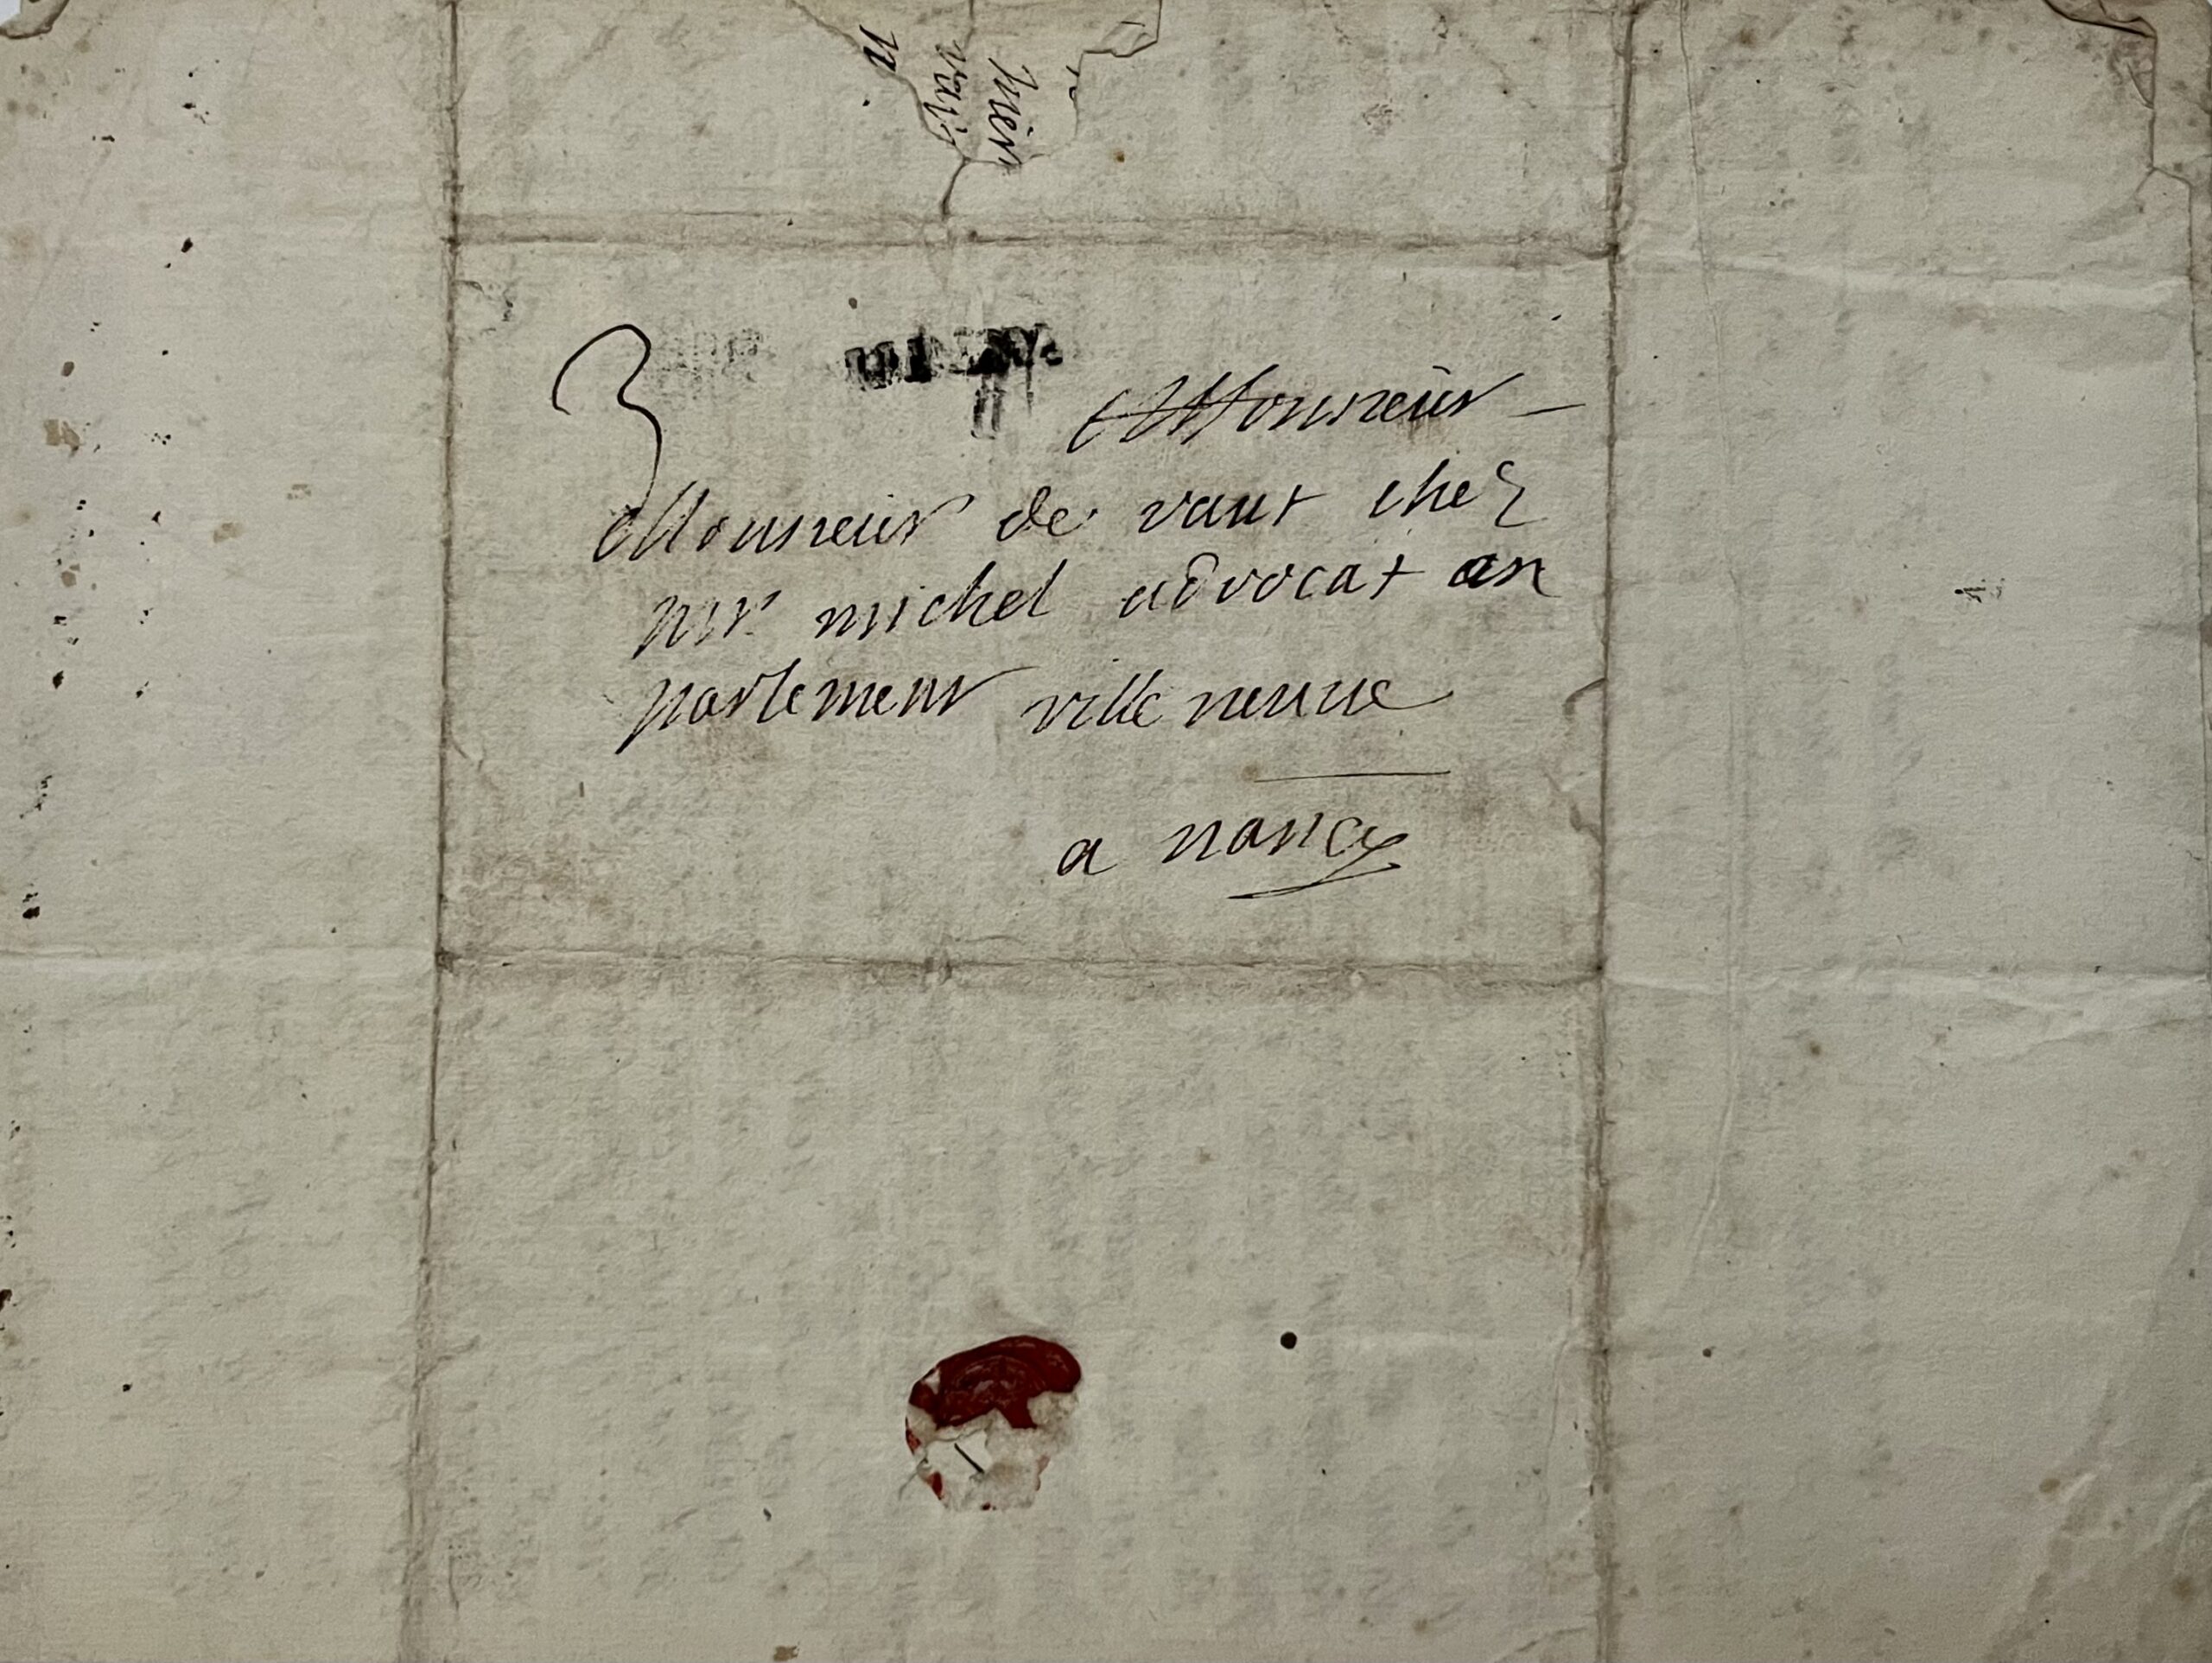 3
Monsieur
Monsieur de vaux chez
mr michel advocat au
parlement ville neuve
a nancy